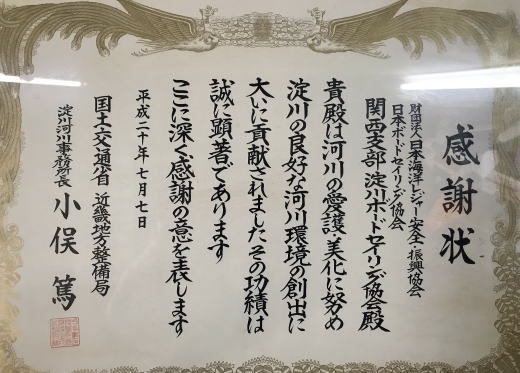 感謝状
財団法人日本海洋レジャー安全・振興協会
日本ボードセイリング協会
関西支部 淀川ボードセイリング協会殿
貴殿は河川の愛護・美化に努め
淀川の良好な河川環境の創出に
大いに貢献されましたその功績は
誠に顕著であります
ここに深く感謝の意を表します
平成二十年七月七日
国土交通省 近畿地方整備局
淀川河川事務所長 小俣 篤